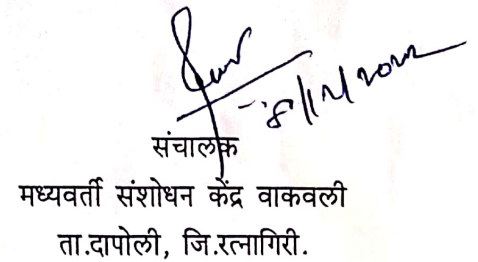 संचालक
मध्यवर्ती संशोधन केंद्र वाकवली
ता.दापोली, जि.रत्नागिरी.